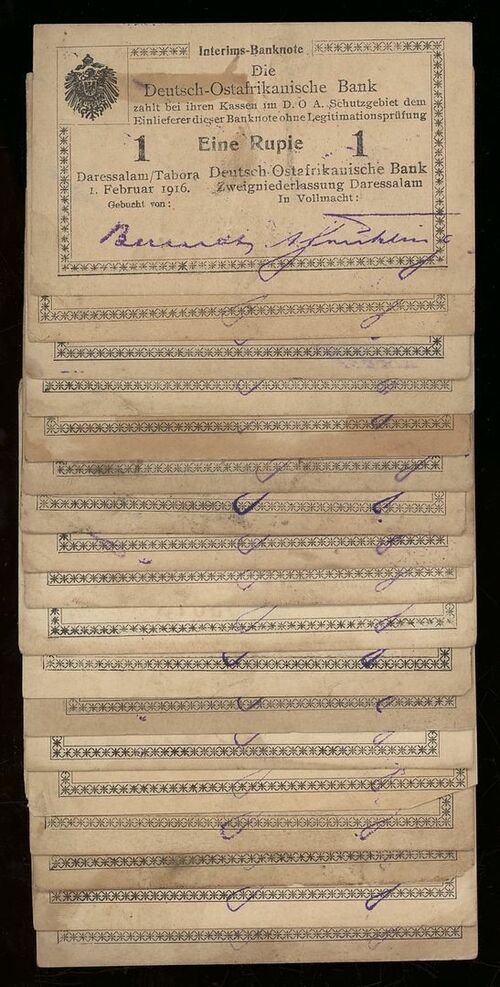 Interims-Banknote
Die
Deutsch-Ostafrikanische Bank
zahlt bei ihren Kassen im D. O A. Schutzgebiet dem
Einlieferer dieser Banknote ohne Legitimationsprüfung
1 Eine Rupie 1
Daressalam/Tabora
1. Februar 1916.
Gebucht von:
Deutsch-Ostafrikanische Bank
Zweigniederlassung Daressalam
In Vollmacht: